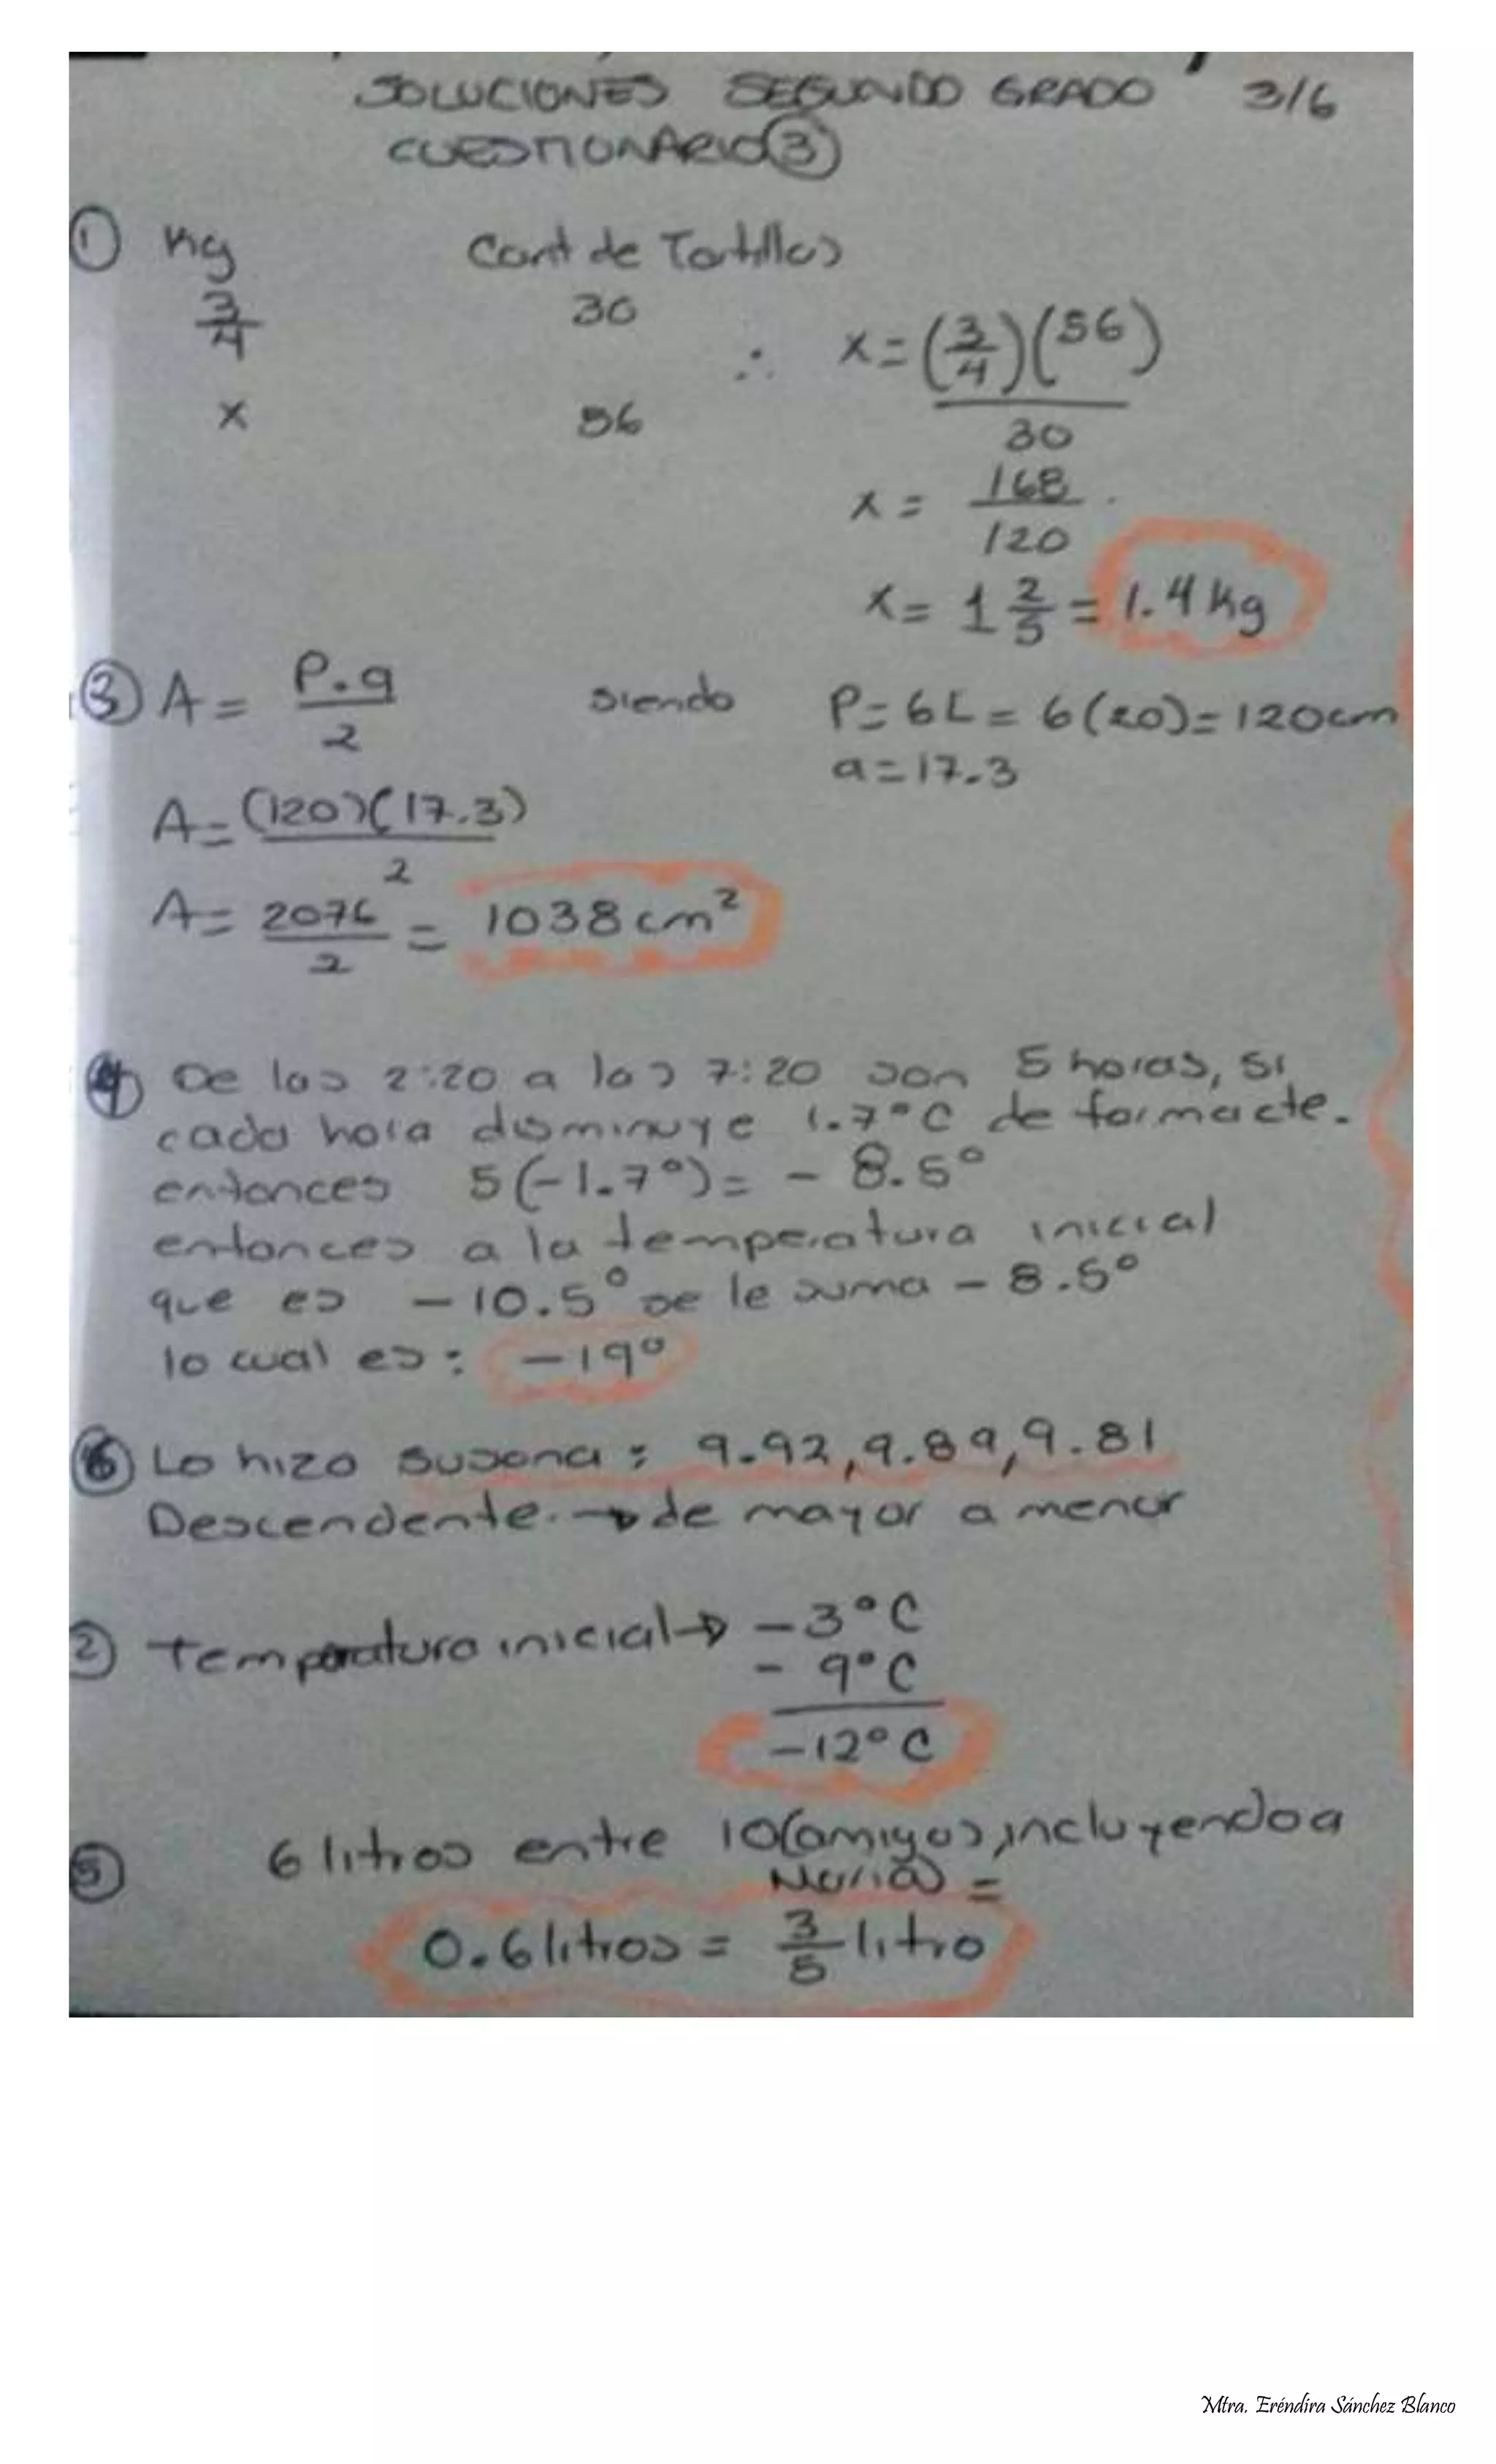 SOLUCIONES SEGUNDO GRADO 3/6
CUESTIONARIO ③
① Kg Cant de Tortillas
3/4 30
∴ x = (3/4)(56) / 30
x 56
x = 168/120
x = 1 2/5 = 1.4 Kg
③ A = P.a / 2 siendo P = 6L = 6(20) = 120cm
a = 17.3
A = (120)(17.3) / 2
A = 2076 / 2 = 1038 cm²
④ De las 2:20 a las 7:20 son 5 horas, si
cada hora disminuye 1.7°C de forma cte.
entonces 5(-1.7°) = - 8.5°
entonces a la temperatura inicial
que es - 10.5° se le suma - 8.5°
lo cual es: -19°
⑥ Lo hizo Susana: 9.92, 9.89, 9.81
Descendente → de mayor a menor
② Temperatura inicial → -3°C
- 9°C
-12°C
⑤ 6 litros entre 10(amigos, incluyendo a
María) =
0.6 litros = 3/5 litro
Mtra. Eréndira Sánchez Blanco